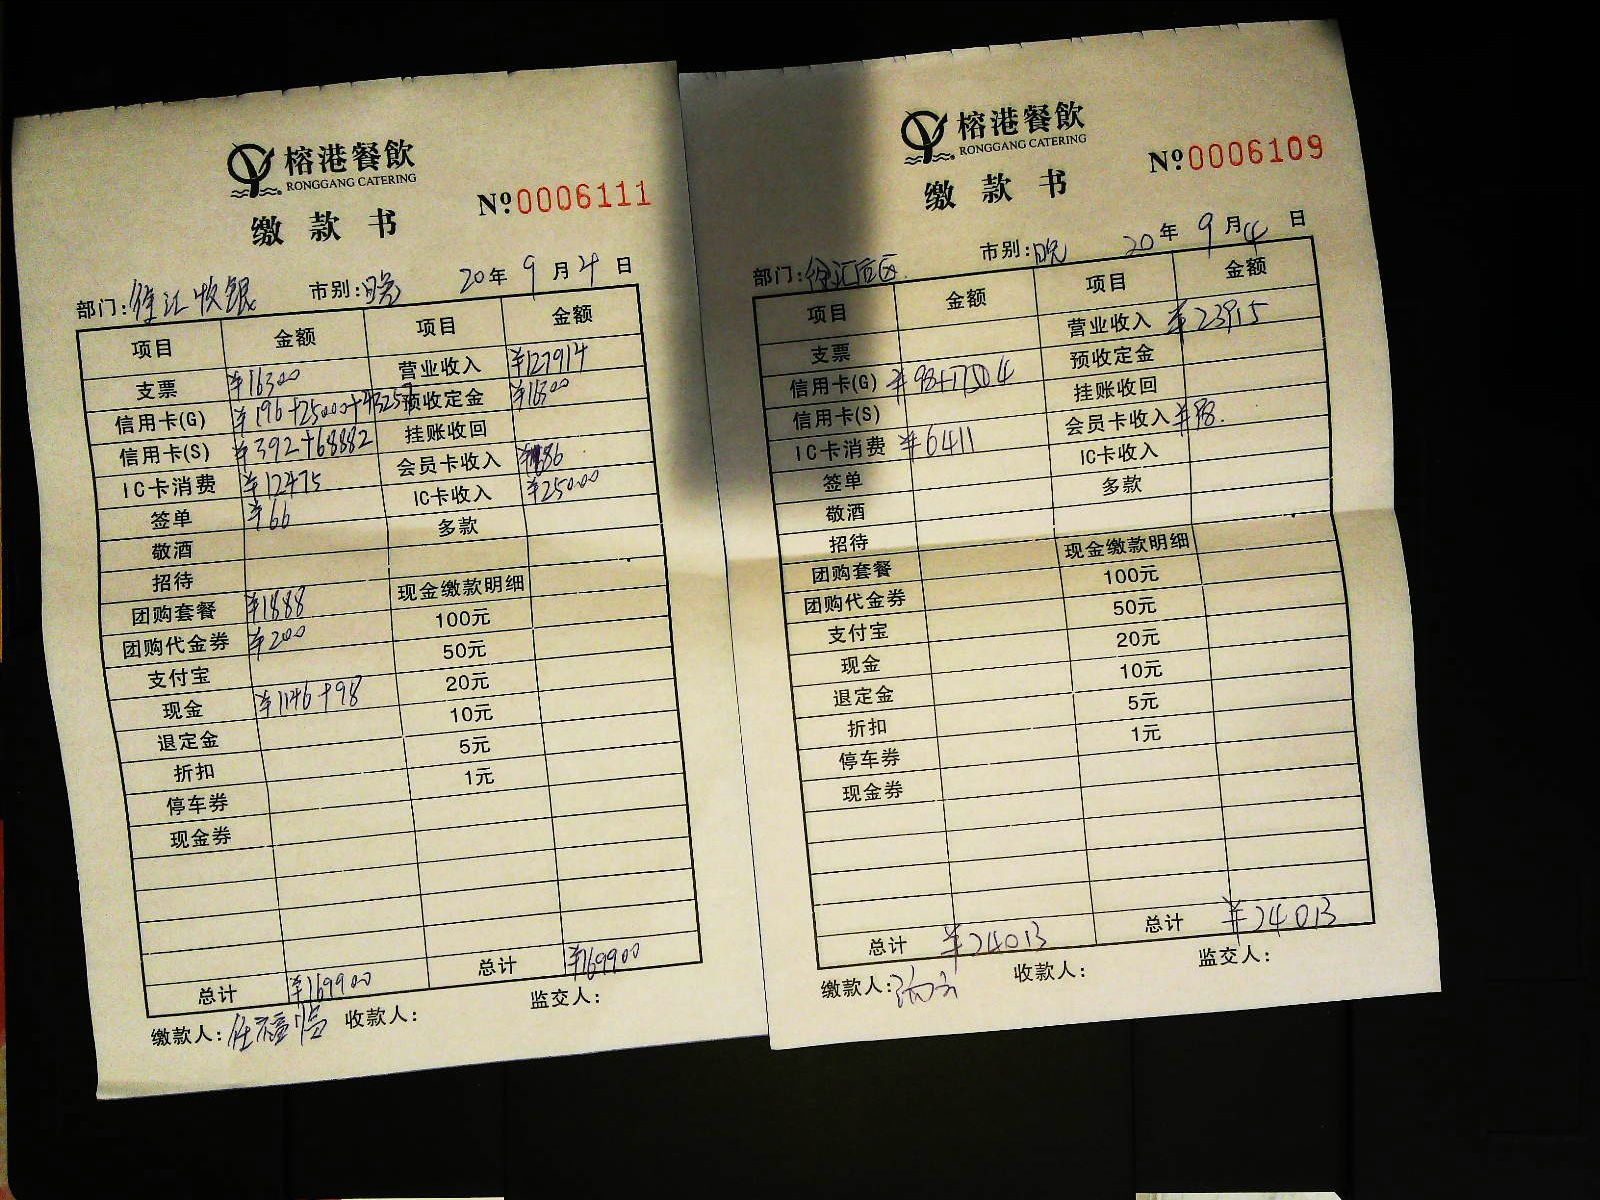 榕港餐飲
RONGGANG CATERING
缴款书
№0006111
部门:徐汇收银 市别:晚 20年9月4日
项目 金额 项目 金额
支票 ¥16300 营业收入 ¥127914
信用卡(G) ¥196+25000+43257 预收定金 ¥16300
信用卡(S) ¥392+68882 挂账收回
IC卡消费 ¥12475 会员卡收入 ¥686
签单 ¥66 IC卡收入 ¥25000
敬酒 多款
招待
团购套餐 ¥1888 现金缴款明细
团购代金券 ¥200 100元
支付宝 50元
现金 ¥1146+98 20元
退定金 10元
折扣 5元
停车券 1元
现金券
总计 ¥169900 总计 ¥169900
缴款人: 收款人: 监交人:
榕港餐飲
RONGGANG CATERING
缴款书
№0006109
部门:徐汇后区. 市别:晚 20年9月4日
项目 金额 项目 金额
支票 营业收入 ¥23915
信用卡(G) ¥98+17504 预收定金
信用卡(S) 挂账收回
IC卡消费 ¥6411 会员卡收入 ¥98.
签单 IC卡收入
敬酒 多款
招待
团购套餐 现金缴款明细
团购代金券 100元
支付宝 50元
现金 20元
退定金 10元
折扣 5元
停车券 1元
现金券
总计 ¥24013 总计 ¥24013
缴款人: 收款人: 监交人: